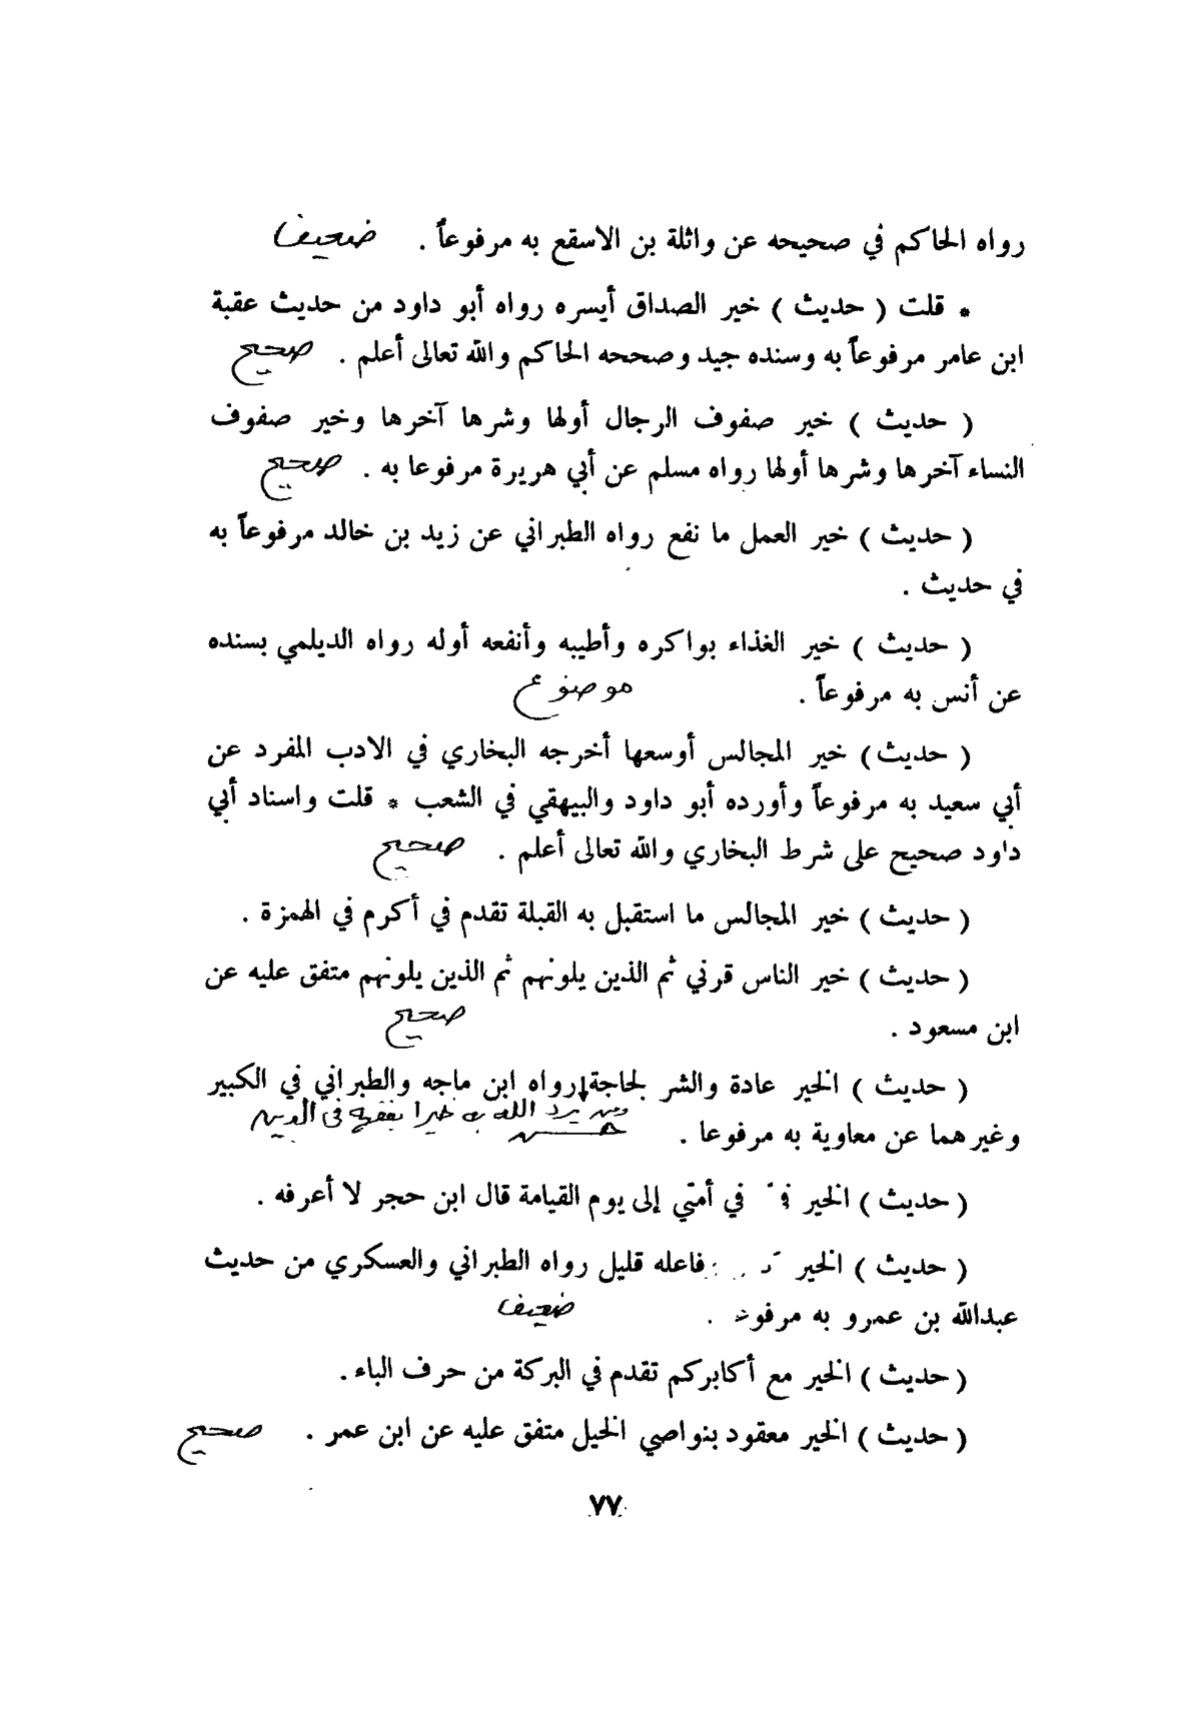 رواه الحاكم في صحيحه عن واثلة بن الاسقع به مرفوعاً . ضعيف
* قلت ( حديث ) خير الصداق أيسره رواه أبو داود من حديث عقبة
ابن عامر مرفوعاً به وسنده جيد وصححه الحاكم والله تعالى أعلم . صحيح
( حديث ) خير صفوف الرجال أولها وشرها آخرها وخير صفوف
النساء آخرها وشرها أولها رواه مسلم عن أبي هريرة مرفوعا به . صحيح
( حديث ) خير العمل ما نفع رواه الطبراني عن زيد بن خالد مرفوعاً به
في حديث .
( حديث ) خير الغذاء بواكره وأطيبه وأنفعه أوله رواه الديلمي بسنده
عن أنس به مرفوعاً . موضوع
( حديث ) خير المجالس أوسعها أخرجه البخاري في الادب المفرد عن
أبي سعيد به مرفوعاً وأورده أبو داود والبيهقي في الشعب * قلت واسناد أبي
داود صحيح على شرط البخاري والله تعالى أعلم . صحيح
( حديث ) خير المجالس ما استقبل به القبلة تقدم في أكرم في الهمزة .
( حديث ) خير الناس قرني ثم الذين يلونهم ثم الذين يلونهم متفق عليه عن
ابن مسعود . صحيح
( حديث ) الخير عادة والشر لحاجة رواه ابن ماجه والطبراني في الكبير
ومن يرد الله به خيرا يفقهه في الدين
وغيرهما عن معاوية به مرفوعا . حسن
( حديث ) الخير في أمتي إلى يوم القيامة قال ابن حجر لا أعرفه .
( حديث ) الخير فاعله قليل رواه الطبراني والعسكري من حديث
عبدالله بن عمرو به . ضعيف
( حديث ) الخير مع أكابركم تقدم في البركة من حرف الباء .
( حديث ) الخير معقود بنواصي الخيل متفق عليه عن ابن عمر . صحيح
٧٧